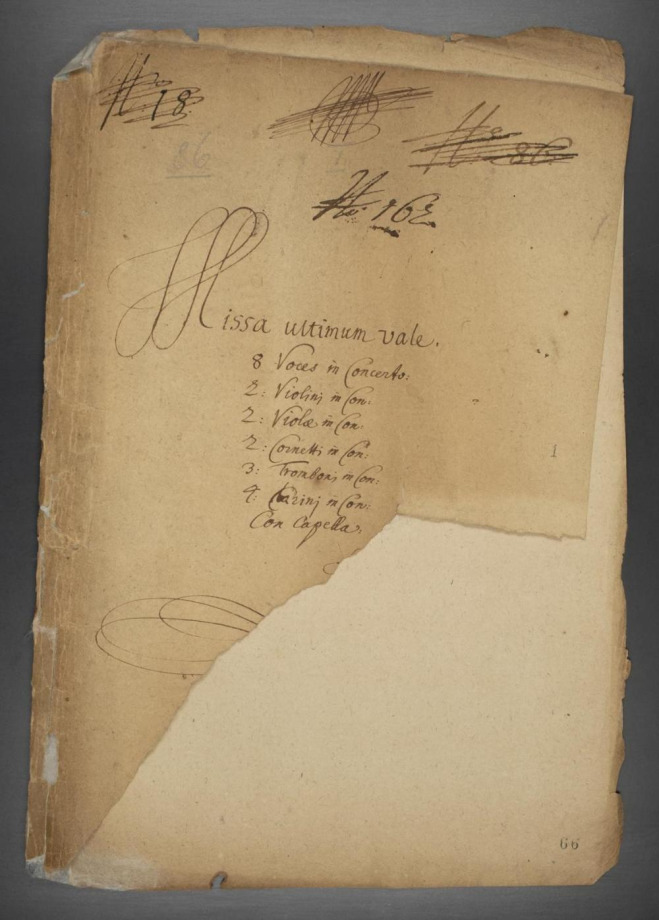 No 18
86
1
No 86
No. 162
Missa ultimum vale.
8 Voces in Concerto:
2: Violinj in Con:
2: Violæ in Con:
2: Cornetti in Con:
3: Trombonj in Con:
4: Clarinj in Con:
Con Capella.
1
66